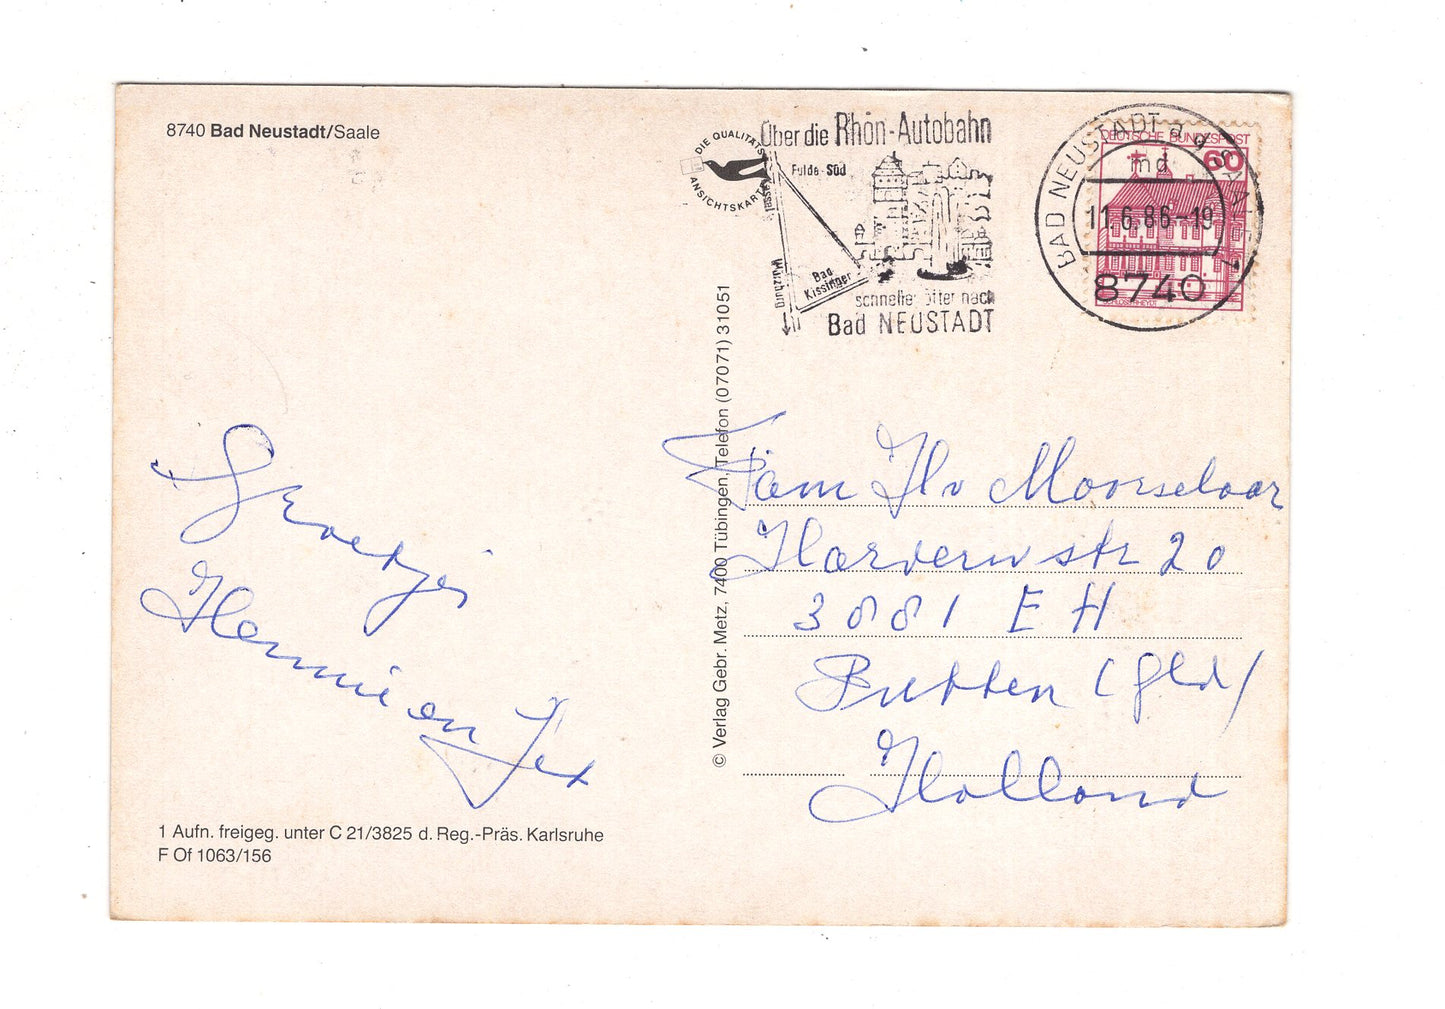 8740 Bad Neustadt/Saale
DIE QUALITÄTS
ANSICHTSKARTE
Über die Rhön-Autobahn
Fulda-Süd
Kassel
Würzburg
Bad
Kissingen
schneller öfter nach
Bad NEUSTADT
BAD NEUSTADT a d SAALE 1
md
11.6.86-19
8740
DEUTSCHE BUNDESPOST
60
SCHLOSS RHEYDT
Groetjes
Hennie en Jex
1 Aufn. freigeg. unter C 21/3825 d. Reg.-Präs. Karlsruhe
F Of 1063/156
© Verlag Gebr. Metz, 7400 Tübingen, Telefon (07071) 31051
Fam H v Moorselaar
20
3881 EH
Putten (Gld)
Holland